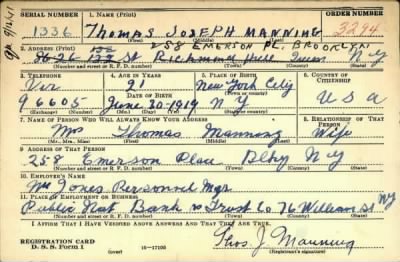 SERIAL NUMBER 1. NAME (Print) ORDER NUMBER
1336 THOMAS JOSEPH MANNING 3294
(First) (Middle) (Last)
258 EMERSON PL. BROOKLYN
2. ADDRESS (Print)
St Richmond Hill Queens N Y
(Number and street or R. F. D. number) (Town) (County) (State)
3. TELEPHONE 4. AGE IN YEARS 5. PLACE OF BIRTH 6. COUNTRY OF CITIZENSHIP
Vir 21 New York City
DATE OF BIRTH
96605 June 30-1919 N Y U S A
(Exchange) (Number) (Mo.) (Day) (Yr.) (State or country)
7. NAME OF PERSON WHO WILL ALWAYS KNOW YOUR ADDRESS 8. RELATIONSHIP OF THAT PERSON
Mrs Thomas Manning Wife
(Mr., Mrs., Miss) (First) (Middle) (Last)
9. ADDRESS OF THAT PERSON
258 Emerson Place Bklyn N Y
(Number and street or R. F. D. number) (Town) (County) (State)
10. EMPLOYER'S NAME
Mr Jones Personnel Mgr.
11. PLACE OF EMPLOYMENT OR BUSINESS
Public Nat Bank & Trust Co 76 William St NY
(Number and street or R. F. D. number) (Town) (County) (State)
I AFFIRM THAT I HAVE VERIFIED ABOVE ANSWERS AND THAT THEY ARE TRUE.
REGISTRATION CARD
D. S. S. Form 1 (over) 16-17105 Thos. J. Manning
(Registrant's signature)